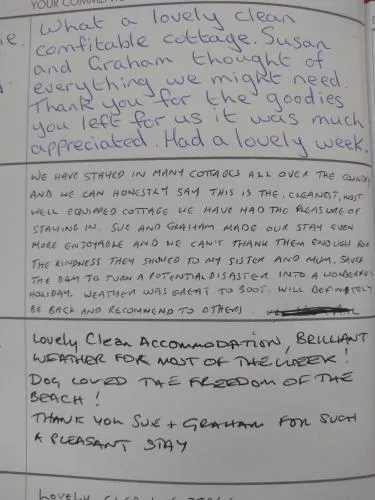 YOUR COMMENTS
ie.
What a lovely clean
comfitable cottage. Susan
and Graham thought of
everything we might need.
Thank you for the goodies
you left for us it was much
appreciated. Had a lovely week.
WE HAVE STAYED IN MANY COTTAGES ALL OVER THE COUNTRY
AND WE CAN HONESTLY SAY THIS IS THE, CLEANEST, MOST
WELL EQUIPPED COTTAGE WE HAVE HAD THE PLEASURE OF
STAYING IN. SUE AND GRAHAM MADE OUR STAY EVEN
MORE ENJOYABLE AND WE CAN'T THANK THEM ENOUGH FOR
THE KINDNESS THEY SHOWED TO MY SISTER AND MUM. SAVED
THE DAY TO TURN A POTENTIAL DISASTER INTO A WONDERFUL
HOLIDAY. WEATHER WAS GREAT TO BOOT. WILL DEFINATELY
BE BACK AND RECOMMEND TO OTHERS.
LOVELY CLEAN ACCOMMODATION, BRILLIANT
WEATHER FOR MOST OF THE WEEK!
DOG LOVED THE FREEDOM OF THE
BEACH!
THANK YOU SUE + GRAHAM FOR SUCH
A PLEASANT STAY